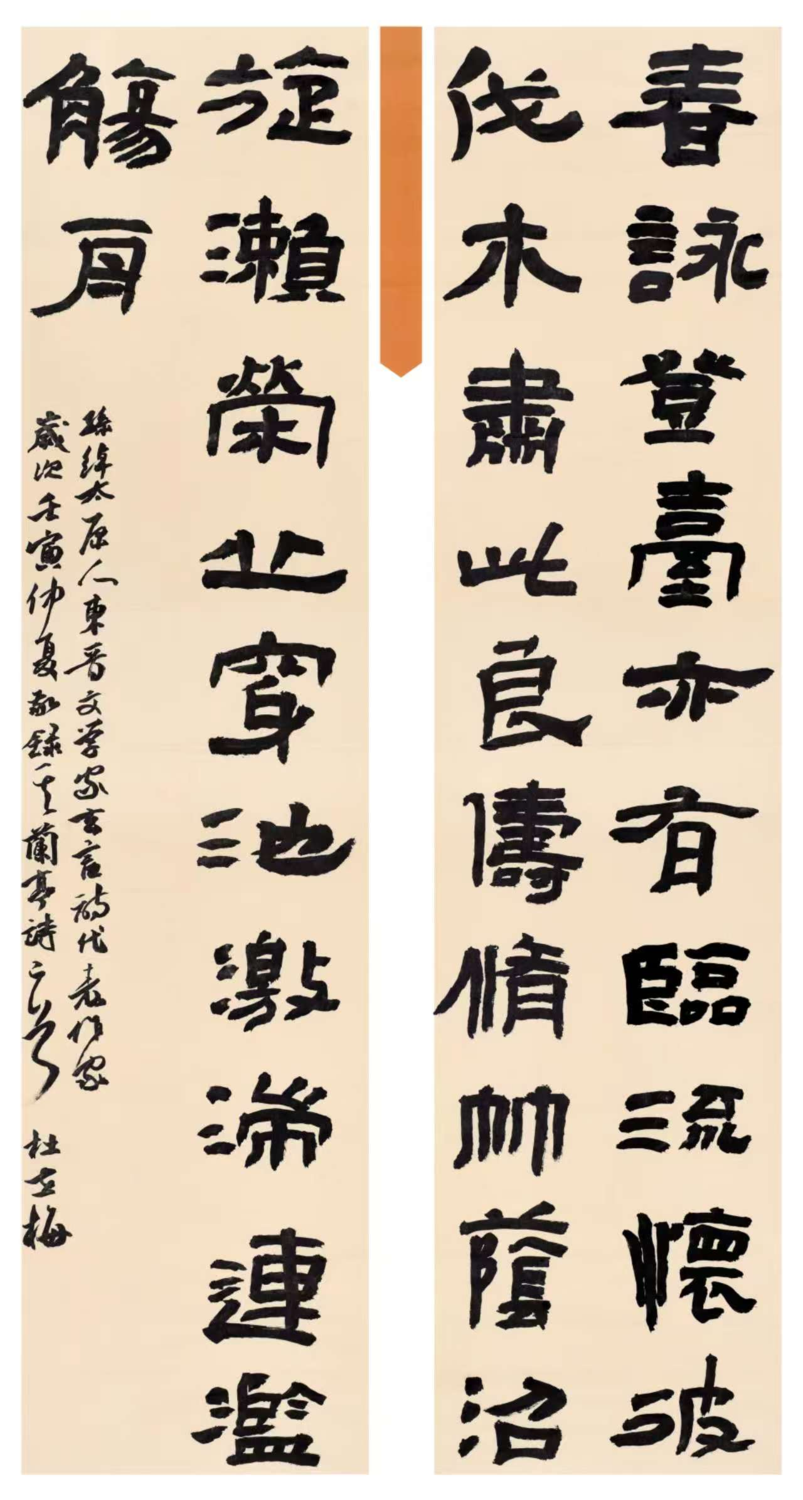 春詠登臺亦有臨流懷破
伐木肅此良儔脩竹蔭沼
旋瀨榮丘穿池激湍連濫
觴舟
孫綽太原人東晉文学家玄言詩代表作家
歲次壬寅仲夏敬録其蘭亭詩首 杜梅